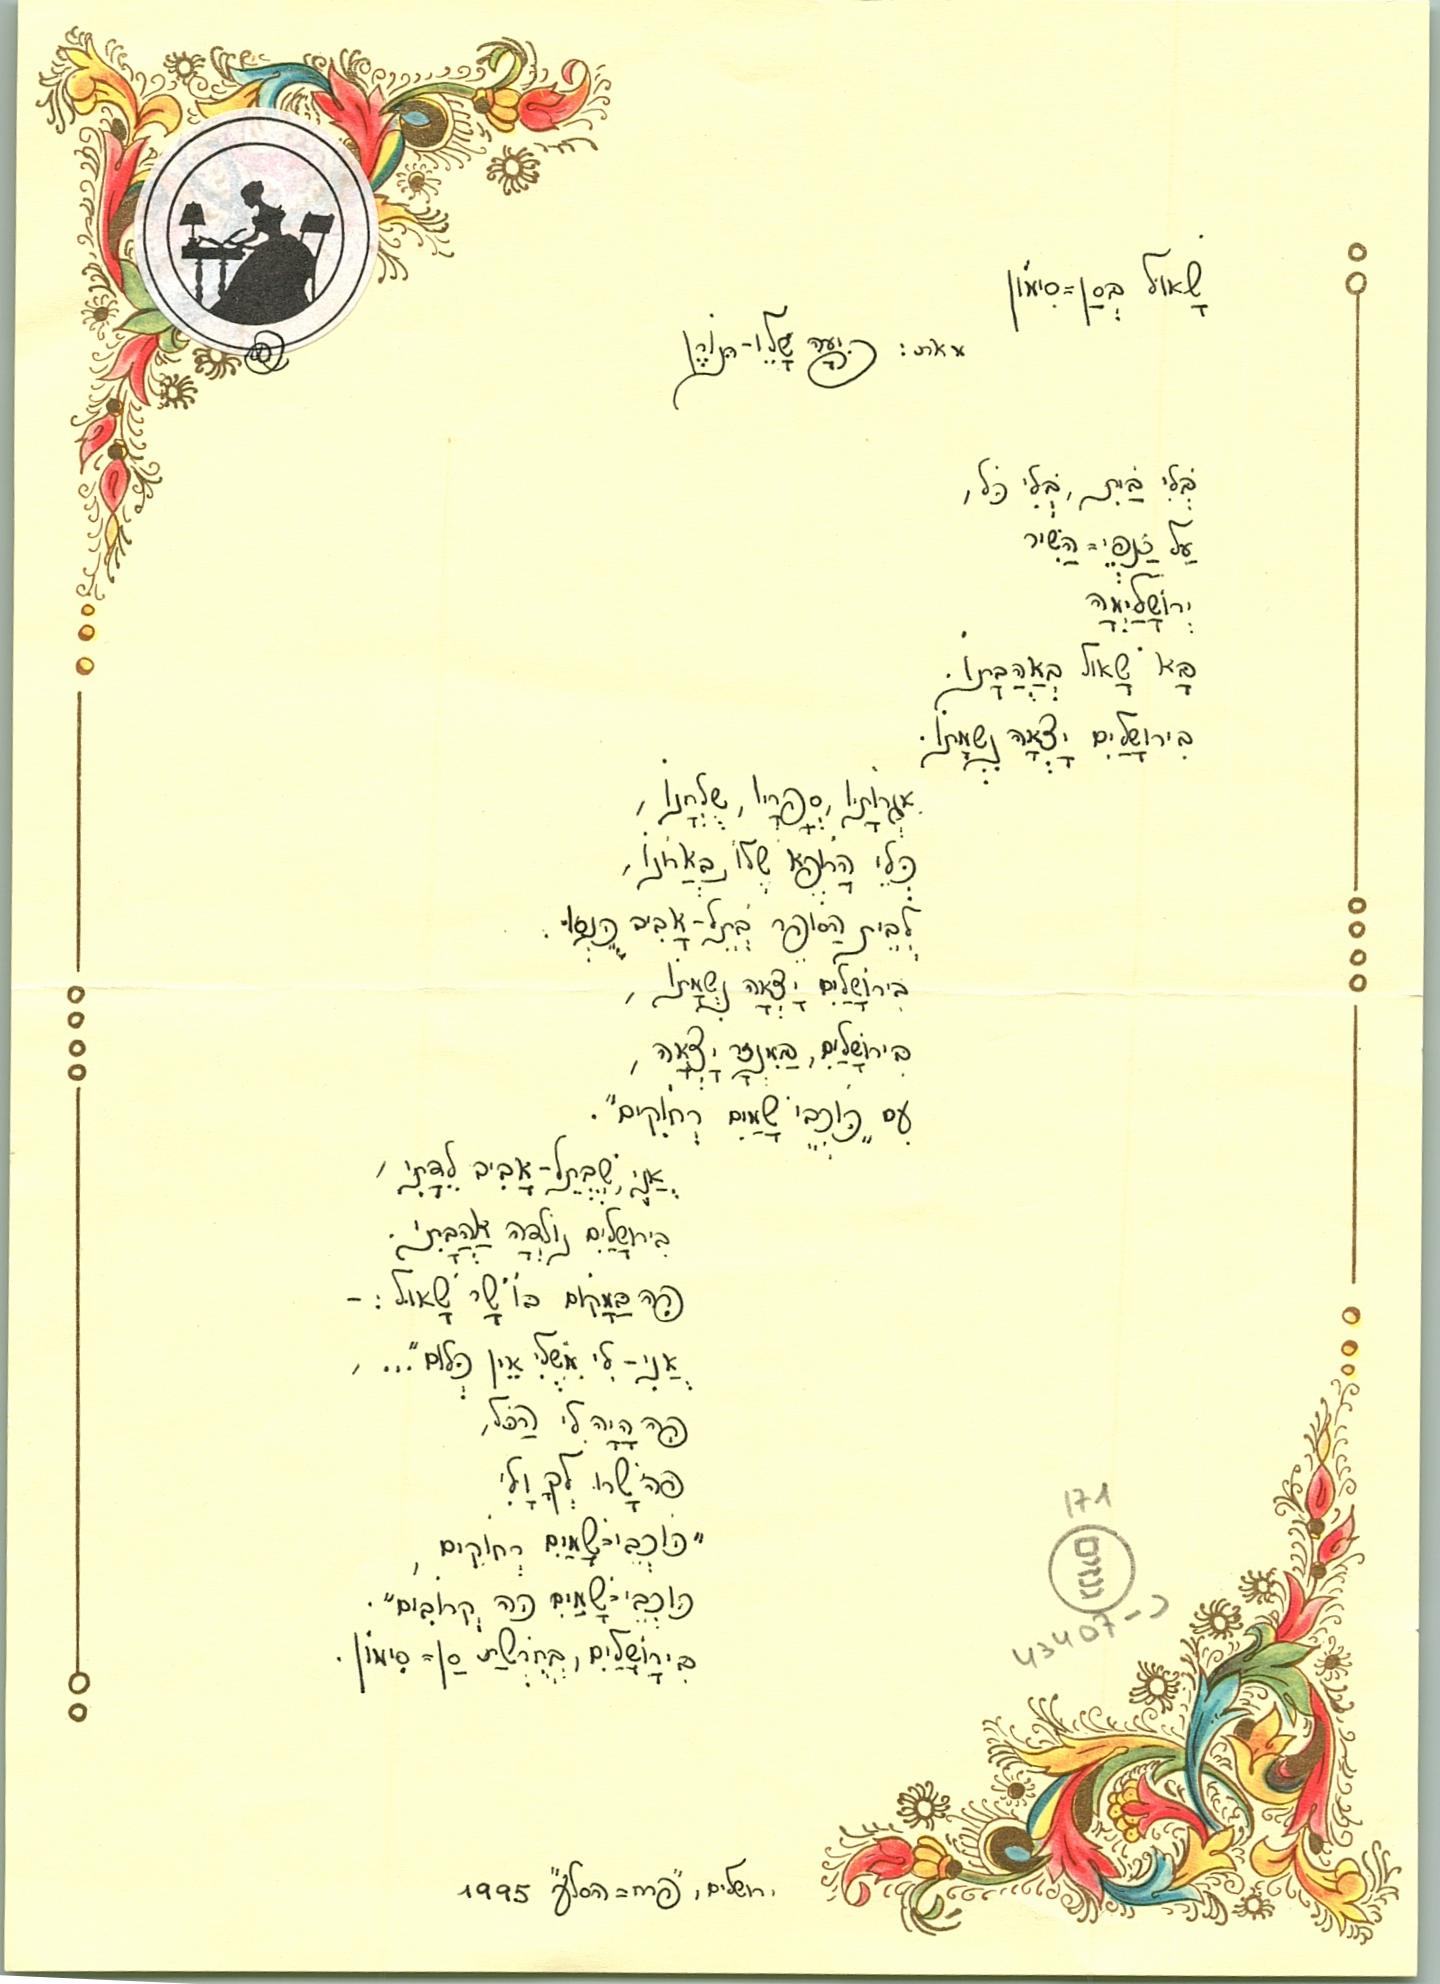 שָׁאוּל בְּסַן=סִימוֹן
מאת: רִנָּעָה שָׁלֵו-תּוֹרֶן
בְּלִי בַּיִת, בְּלִי כֹּל,
עַל כַּנְפֵי=הַשִּׁיר
יְרוּשָׁלַיְמָה
בָּא שָׁאוּל בְּאַהֲבָתוֹ.
בִּירוּשָׁלַיִם יָצְאָה נִשְׁמָתוֹ.
אִגְרוֹתָיו, סְפָרָיו, שֻׁלְחָנוֹ,
כְּלֵי הָרוֹפֵא שֶׁלּוֹ בַּאֲרוֹנוֹ,
לְבֵית הַסּוֹפֵר בְּתֵל-אָבִיב הֻכְנְסוּ.
בִּירוּשָׁלַיִם יָצְאָה נִשְׁמָתוֹ,
בִּירוּשָׁלַיִם, בַּמִּנְזָר יָצְאָה,
עִם "כּוֹכְבֵי שָׁמַיִם רְחוֹקִים".
אֲנִי, שֶׁבְּתֵל-אָבִיב לֵדָתִי,
בִּירוּשָׁלַיִם נוֹלְדָה אַהֲבָתִי.
פֹּה בַּמָּקוֹם בּוֹ שָׁר שָׁאוּל: -
אֲנִי - לִי מִשֶּׁלִּי אֵין כְּלוּם"...,
פֹּה הָיָה לִי הַכֹּל,
פֹּה שָׁרוּ לְךָ וָלִי
"כּוֹכְבֵי=שָׁמַיִם רְחוֹקִים,
כּוֹכְבֵי=שָׁמַיִם פֹּה קְרוֹבִים".
בִּירוּשָׁלַיִם, בְּחֻרְשַׁת סַן=סִימוֹן.
171
גנזים
43407-כ
ירושלים, "פרח=הסלע" 1995